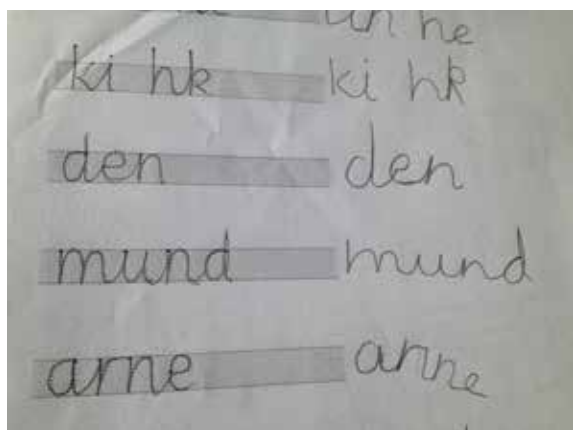 un he
ki hk ki hk
den den
mund mund
arne arne